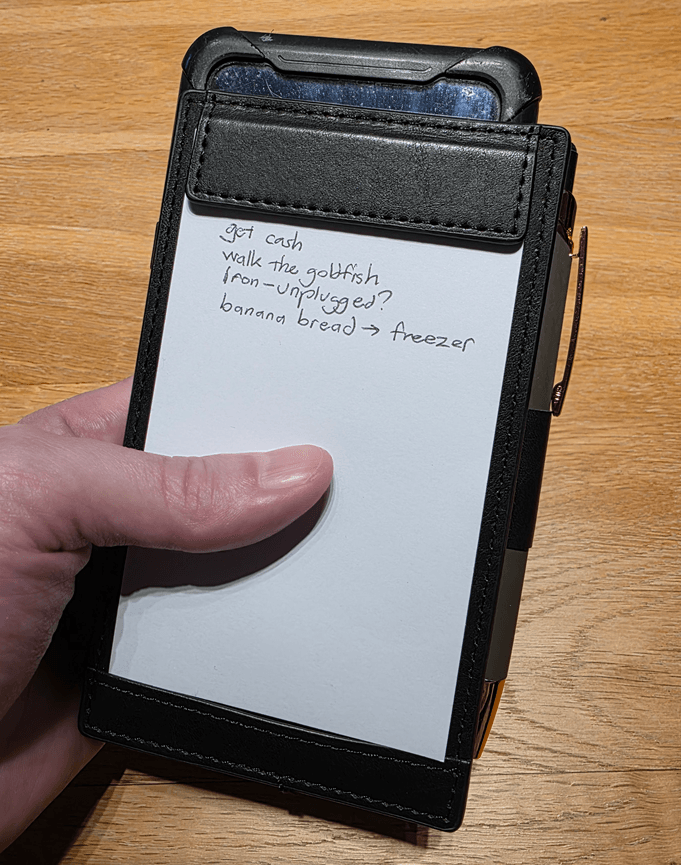 get cash
walk the goldfish
Iron-unplugged?
banana bread → freezer